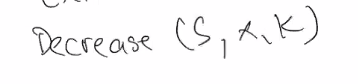 Decrease (S, x, K)